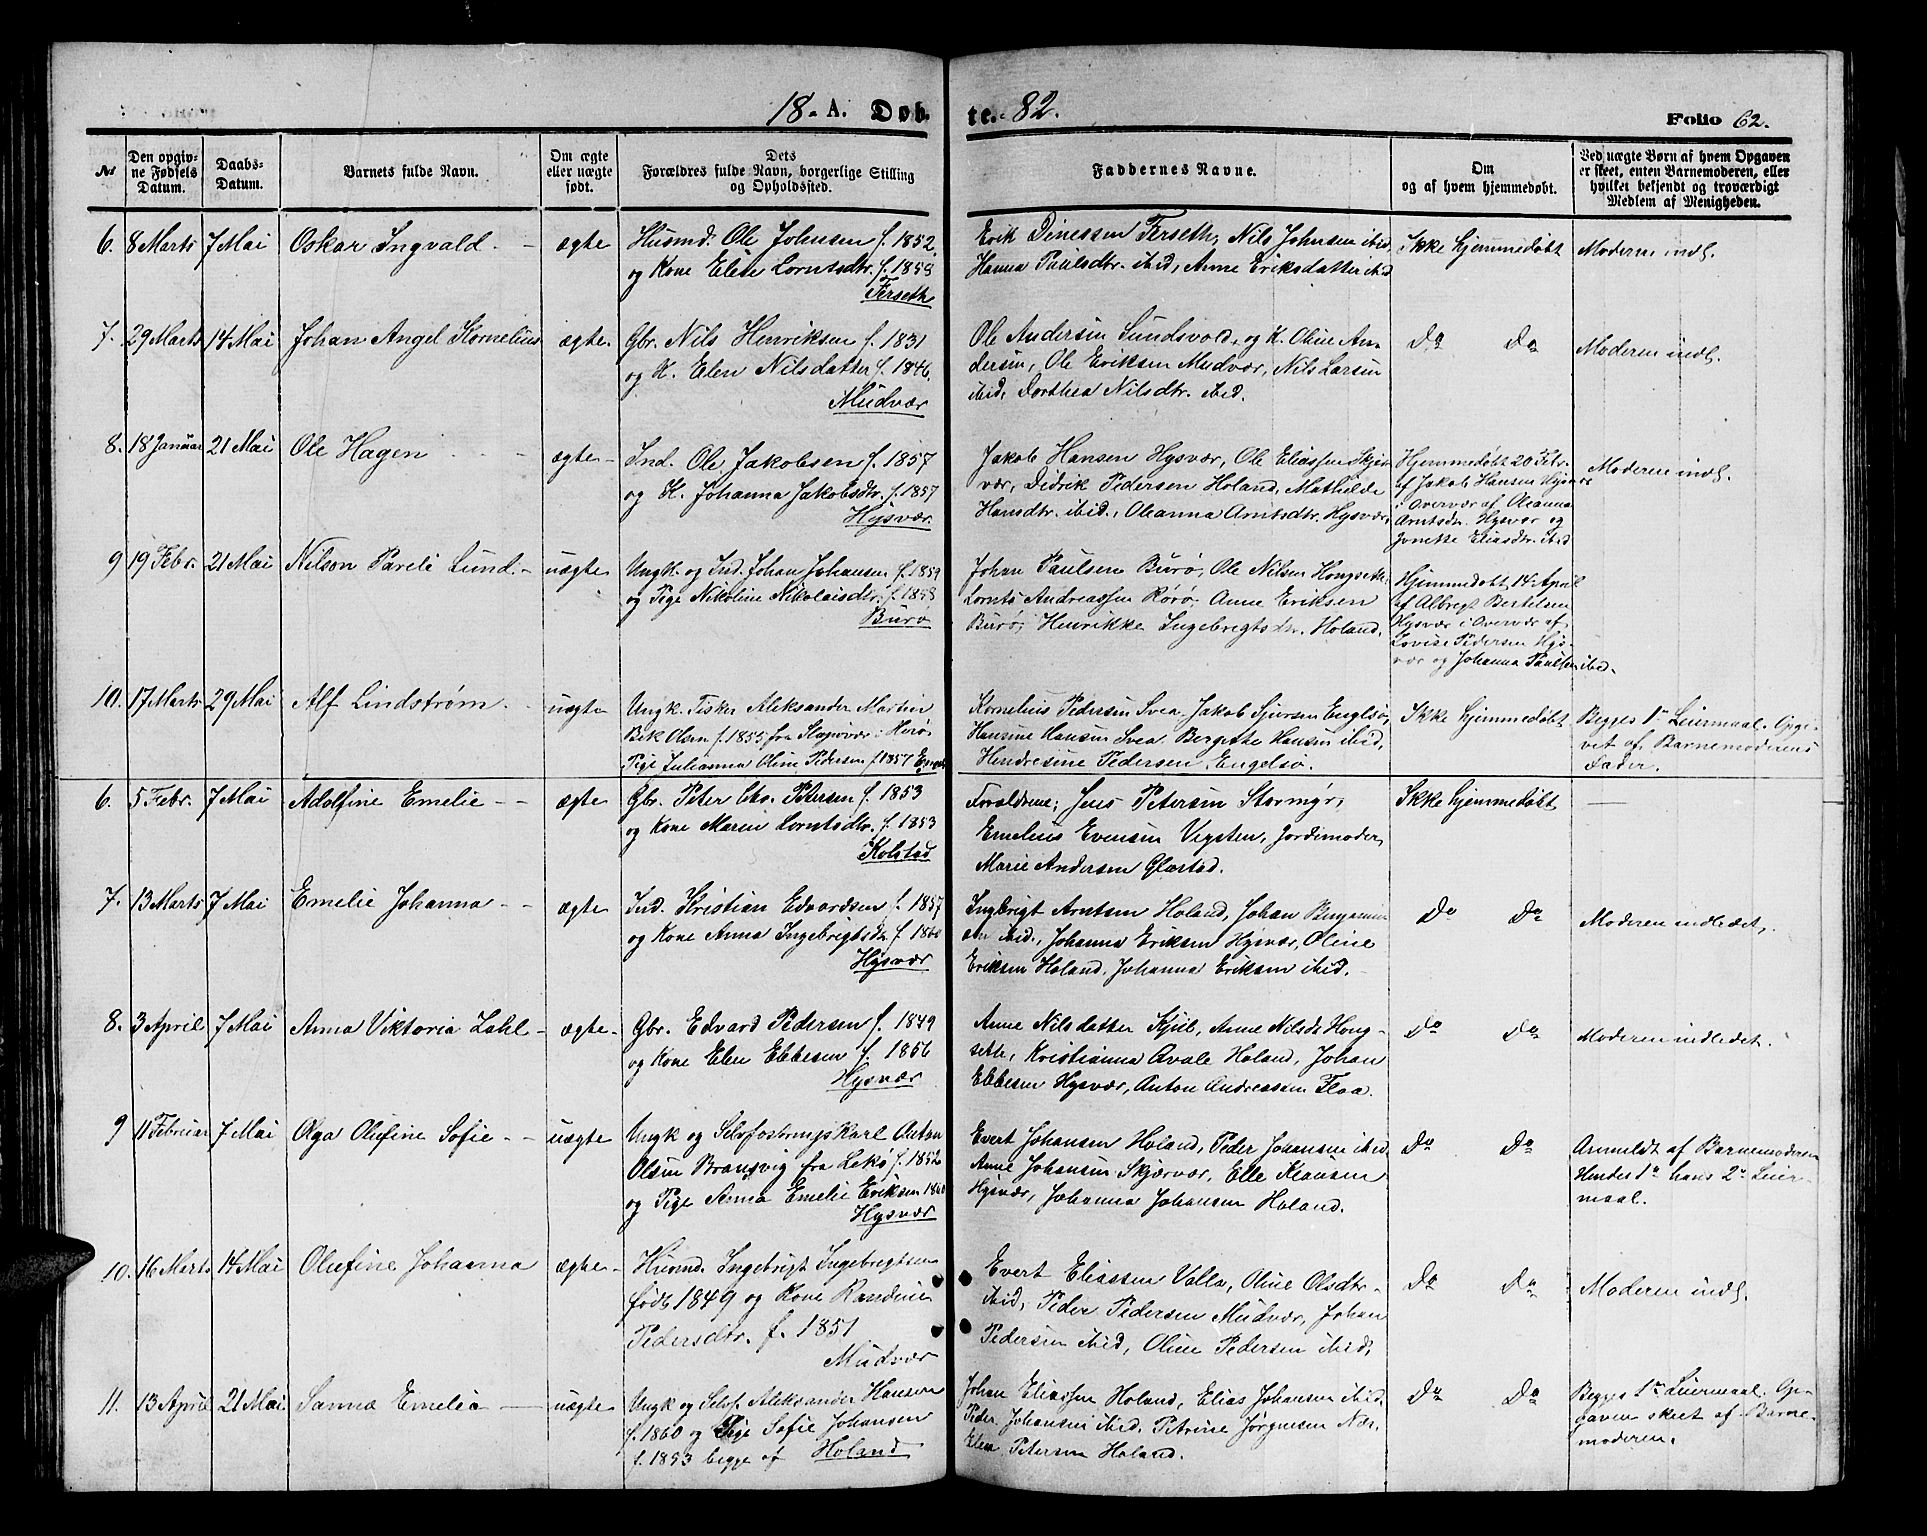 18-A. Døb-
te. 82.
Folio 62.
№
Den opgiv-
ne Fødsels
Datum.
Daabs-
Datum.
Barnets fulde Navn.
Om ægte
eller uægte
født.
Dets
Forældres fulde Navn, borgerlige Stilling
og Opholdssted.
Faddernes Navne.
Om
og af hvem hjemmedøbt.
Ved uægte Børn af hvem Opgaven
er skeet, enten Barnemoderen, eller
hvilket bekjendt og troværdigt
Medlem af Menigheden.
6. 8 Marts 7 Mai Oskar Ingvald - ægte
Husmd. Ole Johnsen f. 1852.
og Kone Elen Lorntsdtr. f. 1858
Ferseth
Erik Dinessen Ferseth, Nils Johnsen ibid,
Hanna Paulsdtr. ibid, Anne Eriksdatter ibid
Ikke hjemmedøbt
Moderen indl.
7. 29 Marts 14 Mai Johan Angel Kornelius ægte.
Gbr. Nils Henriksen f. 1831
og K. Elen Nilsdatter f. 1846.
Mudvær
Ole Andersen Sundsvold, og K. Oline An-
dersen, Ole Eriksen Mudvær, Nils Larsen
ibid, Dorthea Nilsdtr. ibid.
Do Do
Moderen indl.
8. 18 Januar 21 Mai Ole Hagen - ægte -
Ind. Ole Jakobsen f. 1857
og K. Johanna Jakobsdtr. f. 1857
Hysvær.
Jakob Hansen Hysvær, Ole Eliassen Skjær
vær, Didrik Pedersen Holand, Mathilde
Hansdtr. ibid., Oleanna Arntsdtr. Hysvær,
Hjemmedøbt 20 Febr.
af Jakob Hansen Hysvære
i Overvær af Oleanna
Arntsdtr. Hysvær og
Jonette Eliasdtr. ibid
Moderen indl.
9 19 Febr. 21 Mai Nilson Pareli Lund. - uægte
Ungk. og Ind. Johan Johansen f. 1859
og Pige Nikoline Nikolaisdtr. f. 1858
Burø
Johan Paulsen Burø, Ole Nilsen Hongseth
Lornts Andreassen Rørø, Anne Eriksen
Burø, Henrikke Ingebrigtsdr. Holand.
Hjemmedøbt 14. April
af Albregt Bertelsen
Hysvær i Overvær af
Lovise Pedersen Hys-
vær og Johanna Paulsen ibid.
10. 17 Marts 29 Mai Alf Lindstrøm - uægte
Ungk. Fisker Aleksander Martin
Bek Olsen f. 1855 fra i Herø.
Pige Julianna Oline Pedersen f. 1857
Kornelius Pedersen Svea, Jakob Sjursen Engelsø,
Hansine Hansen Svea, Bergette Hansen ibid,
Hendresine Pedersen, Engelsø.
Ikke hjemmedøbt
Begges 1ste Leiermaal. Opgi-
vet af Barnemoderens
Fader.
6. 5 Febr. 7 Mai Adolfine Emelie - - ægte
Gbr. Peter Chr. Petersen f. 1853
og Kone Maren Lorntsdtr. f. 1853
Kolstad
Forældrene, Jens Petersen Stormyr,
Emelius Evensen Vegsten, Jordemoder
Marie Andersen Glæstad.
Ikke hjemmedøbt
-
7. 13 Marts 7 Mai Emelie Johanna - - ægte
Ind. Kristian Edvardsen f. 1857
og Kone Anna Ingebrigtsdr. f. 1860
Hysvær
Ingebrigt Arntsen Holand, Johan Benjamin
sen ibid., Johanna Eriksen Hysvær, Oline
Eriksen Holand, Johanna Eriksen ibid.
Do Do
Moderen indledet.
8. 3 April 7 Mai Anna Viktoria Zahl - ægte -
Gbr. Edvard Pedersen f. 1849
og Kone Elen Ebbesen f. 1856
Hysvær
Anne Nilsdatter Kjul, Anne Nilsdr Hong-
seth, Kristianna Avale Holand, Johan
Ebbesen Hysvær, Anton Andreassen Floa.
Do Do
Moderen indledet.
9 11 Februar 7 Mai Olga Olufine Sofie - - uægte
Ungk og Selvforsørings Karl Anton
Olsen Brangsvig fra Lekø f. 1852
og Pige Anna Emelie Eriksen 1860
Hysvær
Evert Johansen Holand, Peder Johansen ibid,
Anne Johansen Skjærvær, Elle Klausen
Hysvær, Johanna Johansen Holand.
Do Do
Anmeldt af Barnemoderen
Hendes 1ste hans 2det Leier-
maal.
10. 16 Marts 14 Mai Olufine Johanna ægte -
Husmd. Ingebrigt Ingebrigtsen
født 1849 og Kone Randine
Pedersdtr. f. 1851
Mudvær
Evert Eliassen Valla, Oline Olsdtr -
ibid, Peder Pedersen Mudvær, Johan
Pedersen ibid, Oline Pedersen ibid,
Do Do
Moderen indl.
11. 13 April 21 Mai Sanna Emelie - uægte
Ungk og Selvf. Aleksander Hansen
f. 1860 og Pige Sofie Johansen
f. 1853 begge af Holand
Johan Eliassen Holand, Elias Johansen ibid.
Peder Johansen ibid. Petrine Jørgensen Næs.
Elen Petersen Holand.
Do Do
Begges 1ste Leiermaal. Op-
gaven skeet af Barne-
moderen.